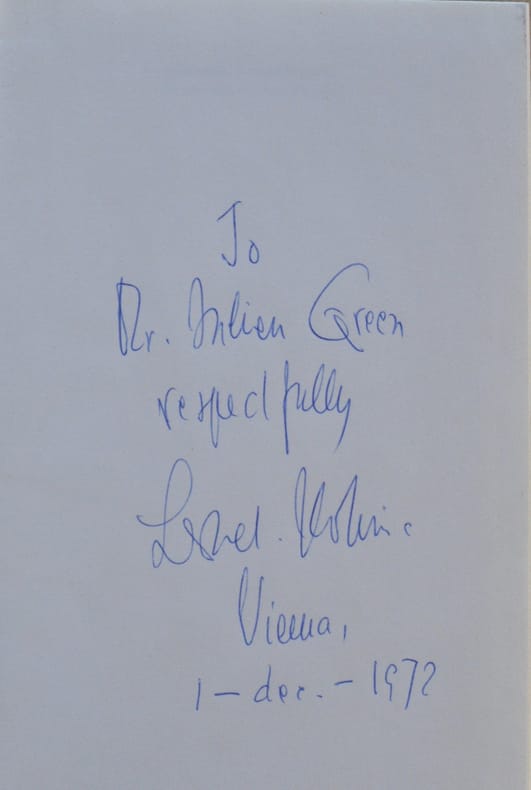 To
Mr. Julien Green
respectfully
Vienna,
1 - dec. - 1972